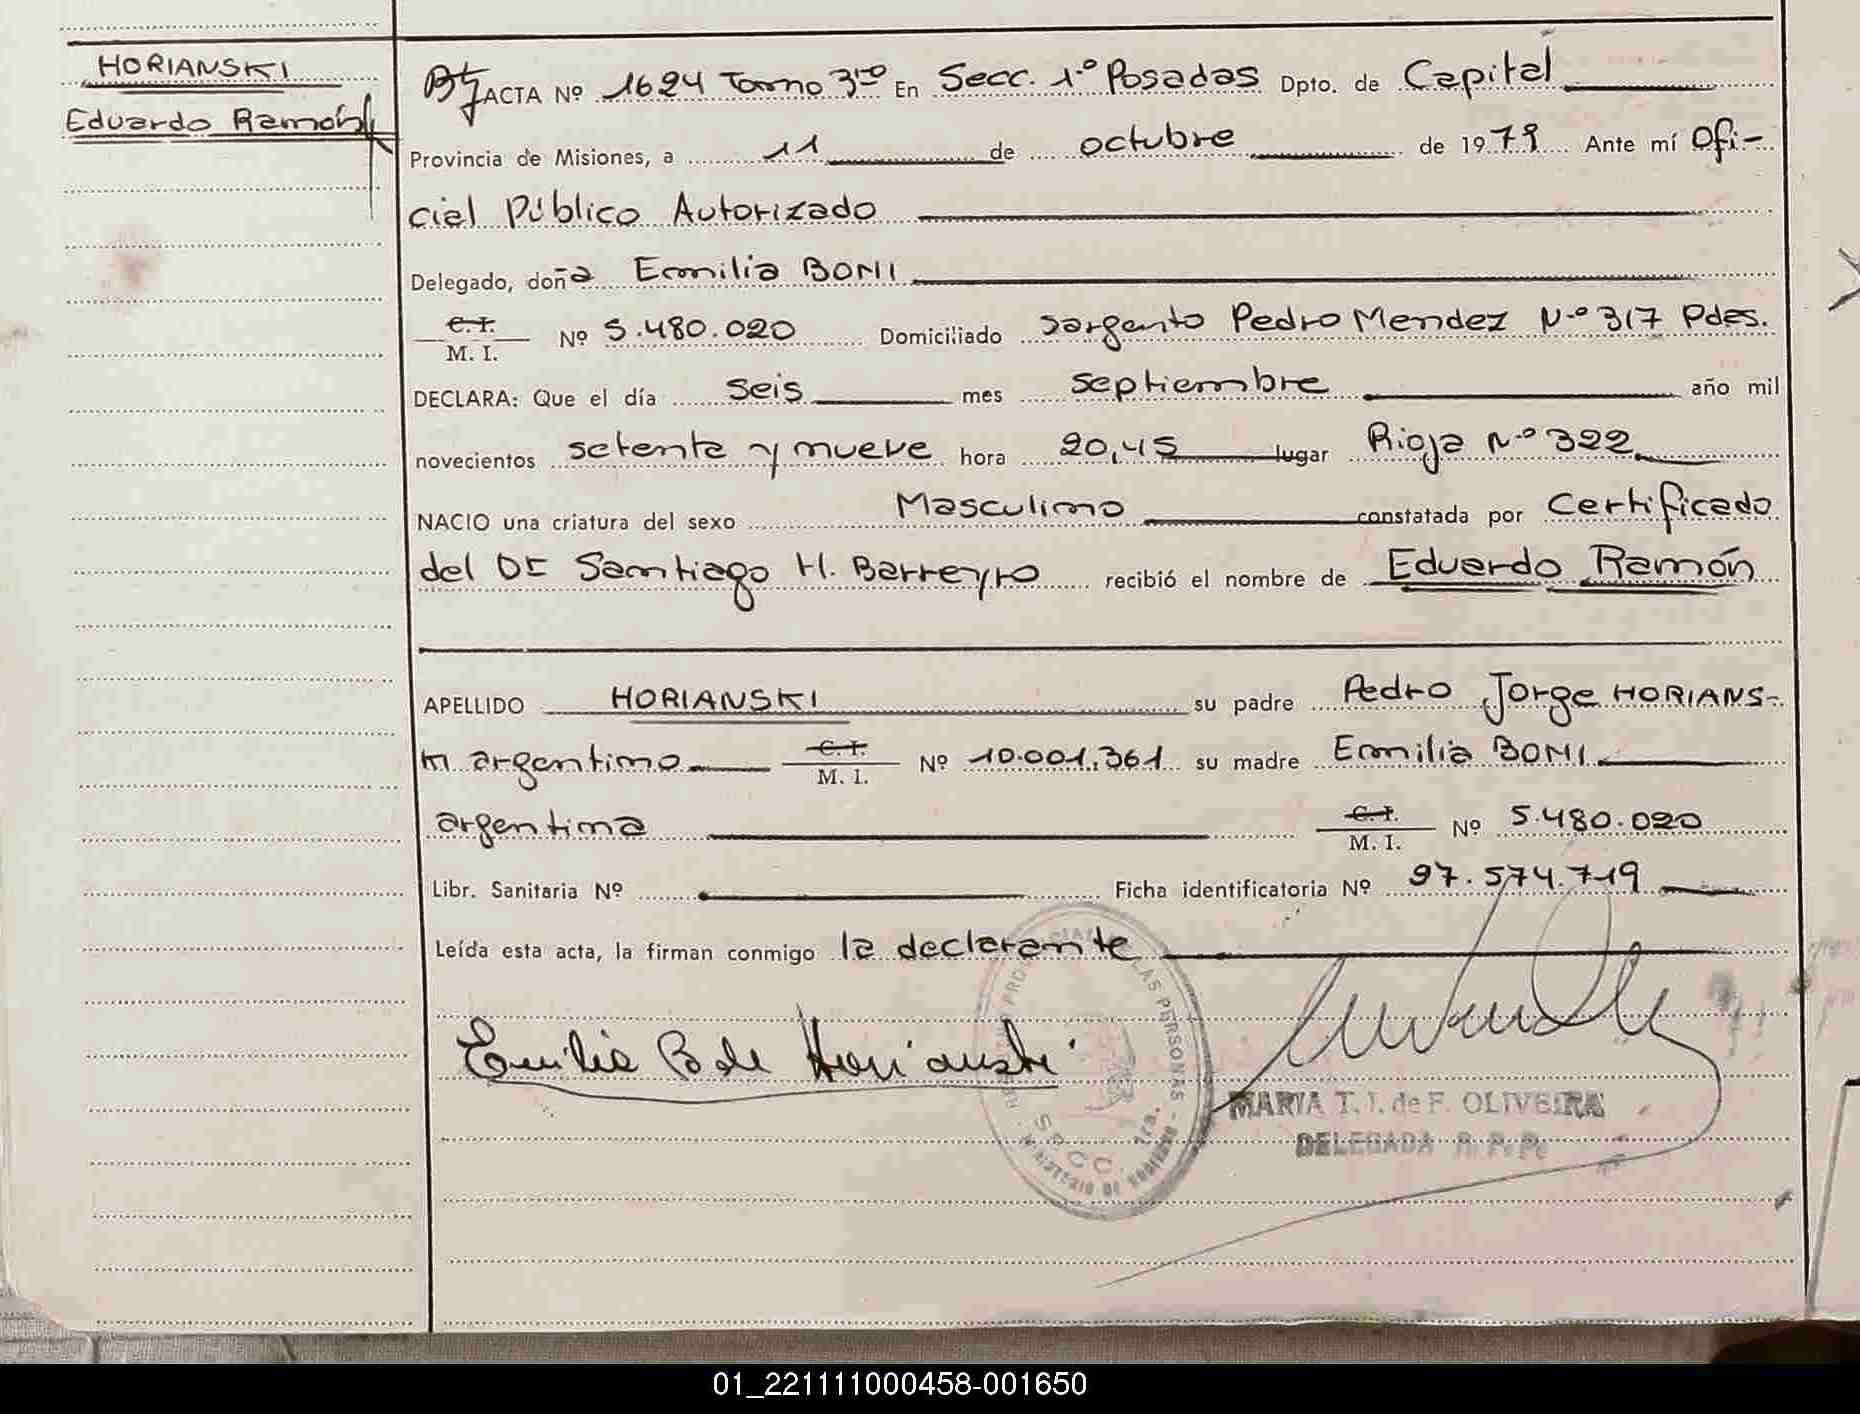 HORIANSKI
Eduardo Ramón
ACTA Nº 1624 Tomo 3ro En Secc. 1.º Posadas Dpto. de Capital
Provincia de Misiones, a 11 de octubre de 1979 Ante mí Ofi-
cial Público Autorizado
Delegado, doña Emilia BONI
C.I. M. I. Nº 5.480.020 Domiciliado Sargento Pedro Mendez N.º 317 Pdas.
DECLARA: Que el día seis mes septiembre año mil
novecientos setenta y nueve hora 20,45 lugar Rioja N.º 322
NACIO una criatura del sexo Masculino constatada por Certificado
del Dr Santiago H. Barreyro recibió el nombre de Eduardo Ramón
APELLIDO HORIANSKI su padre Pedro Jorge HORIANS-
KI argentino C.I. M. I. Nº 10.001.361 su madre Emilia BONI
argentina C.I. M. I. Nº 5.480.020
Libr. Sanitaria Nº Ficha identificatoria Nº 97.574.719
Leída esta acta, la firman conmigo la declarante
Emilia B de Horianski
LAS PERSONAS
SECC. 1ra.
MINISTERIO DE GOBIERNO
MARIA T. I. de F. OLIVEIRA
DELEGADA R. P. P.
01_221111000458-001650